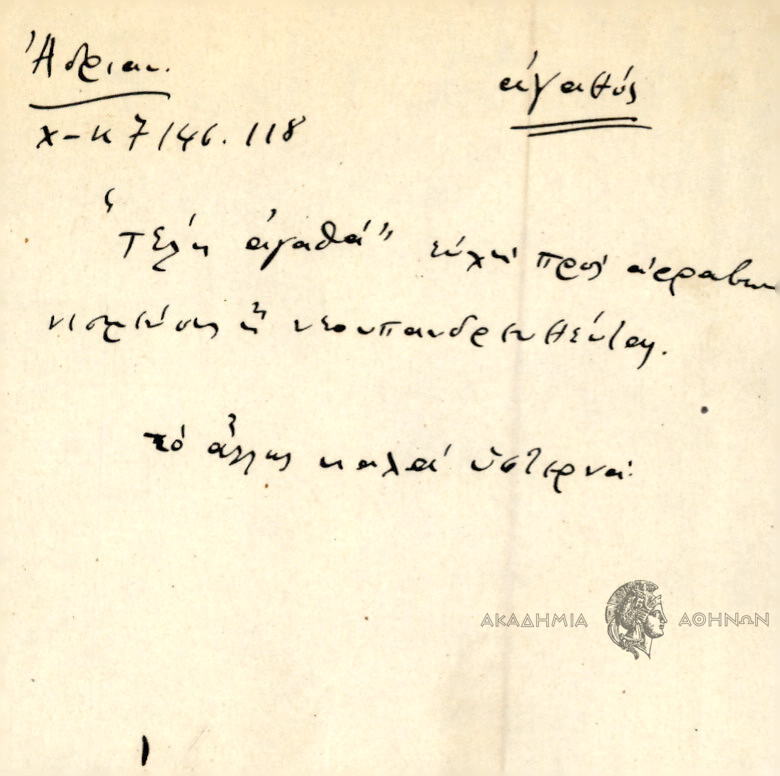 Ἀδριαν.
ἀγαθός
Χ-Κ 7 146. 118
"Τέλη ἀγαθά" εὐχὴ πρὸς ἀρραβω
νισμένους ἢ νεουπανδρευθέντας.
τὸ ἄλλως καλὰ ὕστερνά.
ΑΚΑΔΗΜΙΑ ΑΘΗΝΩΝ